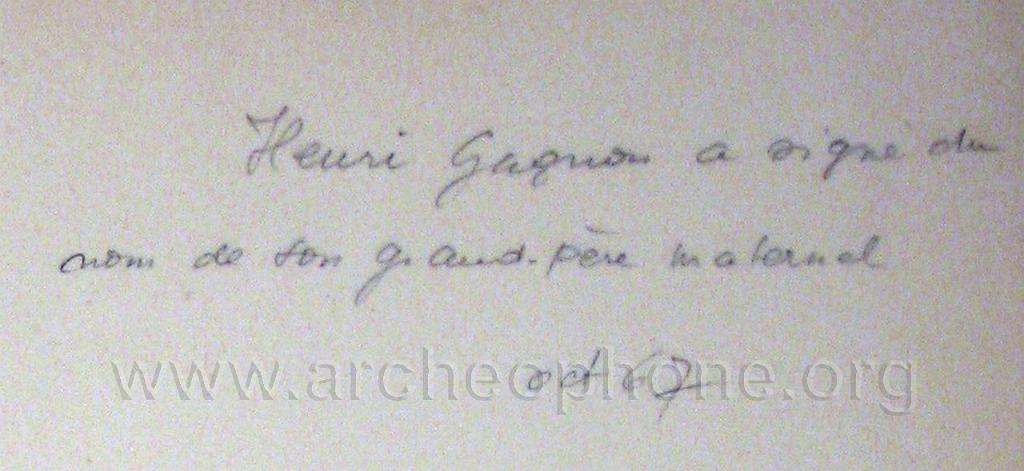 Henri Gagnon a signé du
nom de son grand-père maternel
oct 67
www.archeophone.org